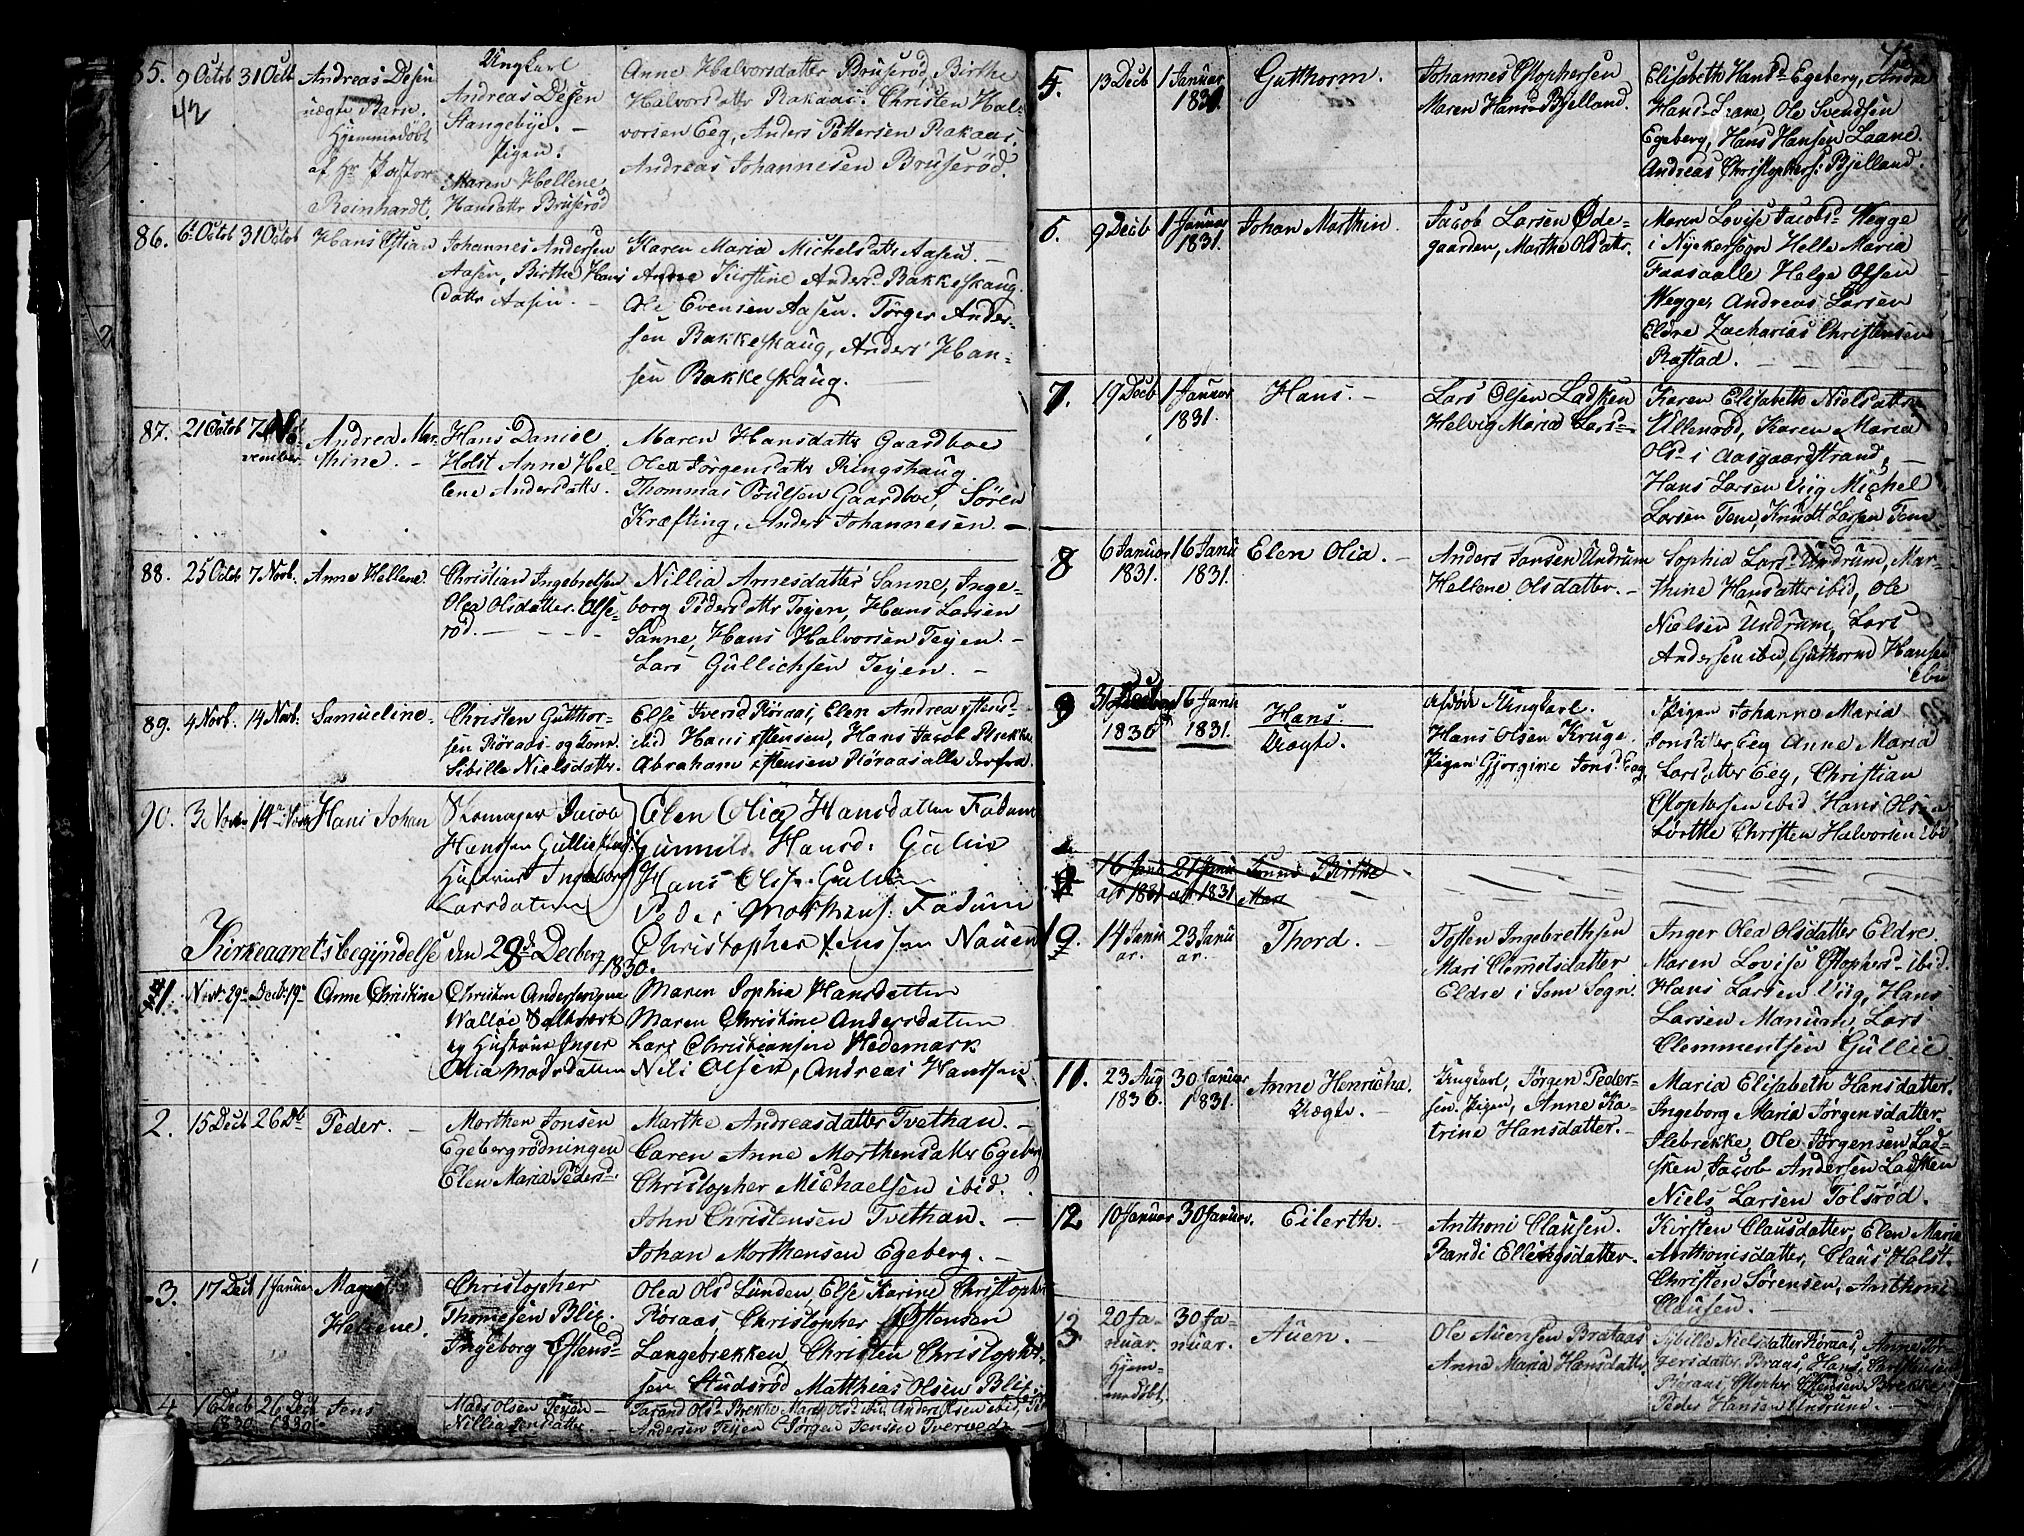 42
85. 9 Octob 31 Octb Andreas Desen
uægte Barn.
Hjemmedøbt
af Hr Pastor
Reinhardt.
Ungkarl
Andreas Desen
Stangebÿe. –
Pigen:
Maren Hellene
Hansdattr Bruserød
Anne Halvorsdatter Bruserød, Birthe
Halvorsdattr Rakaas. Christen Hal-
vorsen Eeg, Anders Pettersen Rakaas.
Andreas Johannesen Bruserød.
86. 6 Octob 31 Octob Hans Cstian
Johannes Andersen
Aasen, Birthe Hans
dattr Aasen. –
Karen Maria Michelsdattr Aasen. –
Andrea Kirstine Andersd. Bakkeskaug.
Ole Evensen Aasen. Törger Ander-
sen Bakkeskaug, Anders Han-
sen Bakkeskaug.
87. 21 Octob 7 No-
vember
Andrea Mar-
thine. –
Hans Daniel
Holst Anne Hel-
lene Andersdattr.
Maren Hansdattr Gaardboe
Olea Jörgensdattr Ringshaug
Thommas Poulsen Gaardboe, Sören
Kræfting, Anders Johannesen. –
88. 25 Octob 7 Novb. Anne Hellene.
Christian Ingebretsen
Olea Olsdatter.
rød. – – – –
Nillia Arnesdatter Sanne, Inge-
borg Pedersdattr Teÿen, Hans Larsen
Sanne, Hans Halvorsen Teÿen. –
Lars Gullichsen Teÿen. –
89. 4 Novb. 14 Novb. Samueline.
Christen Gutthor-
sen Röraas og Kone
Sibille Nielsdattr.
Else Iversd Röraas, Elen Andrea
ibid Hans Hans Jacob Brekke
Abraham Röraas alle derfra
90. 3 Novbr 14 Novb Hans Johan
Skomager Jacob
Hanssen Gullie
Hustrue Ingeborg
Larsdatter
Elen Olia Hansdatter Fadum
Gunnild Hansd: Gulie
Hans Ols. Gullie
Peder Fadum
Christopher Jenssen Nauen
Kirkeaarets begÿndelse den 28d Decbr 1830.
1. Novb 29 Decb 19 Anne Christine
Christen Andersen paa
Walløe Saltværk
og Hustrue Inger
Olia Madsdatter
Maren Sophia Hansdatter
Maren Christine Andersdatter
Lars Christiansen Hedemark
Nils Olsen, Andreas Hanssen
2. 15 Decb 26 Db Peder. –
Morthen Jonsen
Egebergrödningen
Elen Maria Pedersd:
Marthe Andreasdatter Tvethan. –
Caren Anne Morthensdatter Egeberg
Christopher Michaelsen ibid.
John Christensen Tvethan. –
Johan Morthensen Egeberg. –
3. 17 Decb 1 Januar
Hellene.
Christopher
Thomesen Blix.
Ingeborg
Olea Olsd Lunden, Else Karine Christophe
Röraas, Christopher
Langebrekken, Christen Christopher-
sen Studsrød Matthias Olsen Blix
4 16 Decb 1830 26 Dec 1830 Jens
Mads Olsen Teÿen –
Nillea Jensdattr. –
Tarand Olsd Brekke Olsd ibid, Anders Olsen ibid,
Andersen Teÿen Jörgen Jensen Tverved
5. 13 Decb 1 Januar
1831.
Gutthorm.
Johannes Cstophersen
Maren Hansd Bjelland.
Elisabeth Hansd: Egeberg, Andrea
Hansd Ole Svendsen
Egeberg, Hans Hansen Laane
Andreas Christophers: Bjelland.
6. 9 Decb 1 Januar
1831.
Johan Marthin.
Jacob Larsen Øde-
gaarden, Marthe Olsdattr.
Maren Lovise Jacobsd: Wegge
i Nÿkersogn Helle Maria
Faasaalle Helge Olsen
Wegge, Andreas Larsen
Eldre Zacharias Christensen
Rastad.
7. 19 Decb 1 Januar
1831.
Hans. –
Lars Olsen Ladsken
Helvig Maria Larsd
Karen Elisabeth Nielsdatter
Ullenrød, Karen Maria
Olsd: i Aasgaardstrand,
Hans Larsen Viig Michel
Larsen Tem, Knudt Larsen Tem
8 6 Januar 16 Janu
1831. 1831.
Elen Olia. –
Anders Jansen Undrum
Hellene Olsdatter. –
Sophia Larsd: Undrum, Mar-
thine Hansdatter ibid, Ole
Nielsen Undrum, Lars
Andersen ibid, Guthorm Hansen
ibid
9 31 16 Janu
1830 1831.
Hans.
Uægte.
Ungkarl.
Hans Olsen Kruge.
Pigen Gjorgine Jonsd Eeg
Pigen Johanne Maria
Jonsdatter Eeg Anne Maria
Larsdatter Eeg, Christian
Cstophersen ibid. Hans Olsen
Christen Halvorsen ibid
16 Janu 21 Janu Birthe
1831 1831
10. 14 Janu 23 Janu
ar. ar.
Thord. –
Tosten Ingebrethsen
Mari Clemetsdatter
Eldre i Sem Sogn.
Inger Olea Olsdatter Eldre
Maren Lovise Cstophersd ibid.
Hans Larsen Viig, Hans
Larsen Manum, Lars
Clemmentsen Gullie.
11. 23 Aug 30 Januar
1830. 1831.
Anne Henricha.
Uægte. –
Ungkarl, Jörgen Peder-
sen. Pigen, Anne Ka-
trine Hansdatter. –
Maria Elisabeth Hansdatter.
Ingeborg Maria Jørgensdatter
Slebrekke, Ole Jørgensen Lad-
sken, Jacob Andersen Ladsken
Niels Larsen Tolsrød.
12 10 Januar 30 Januar. Eilerth. –
Anthoni Clausen.
Randi Ellingsdatter.
Kirsten Clausdatter, Elen Maria
Anthonisdatter, Claus Holst.
Christen Sørensen, Anthoni
Clausen. –
13 20 Ja- 30 Ja-
nuar. nuar.
Hjem-
medöbt.
Auen. –
Ole Auensen Brataas
Anna Maria Hansdatter
Sÿbille Nielsdatter Röraas, Anne Tor-
gersdatter Braas, Hans
Röraas, Cstopher Brekke
Peder Hansen Undrum. –